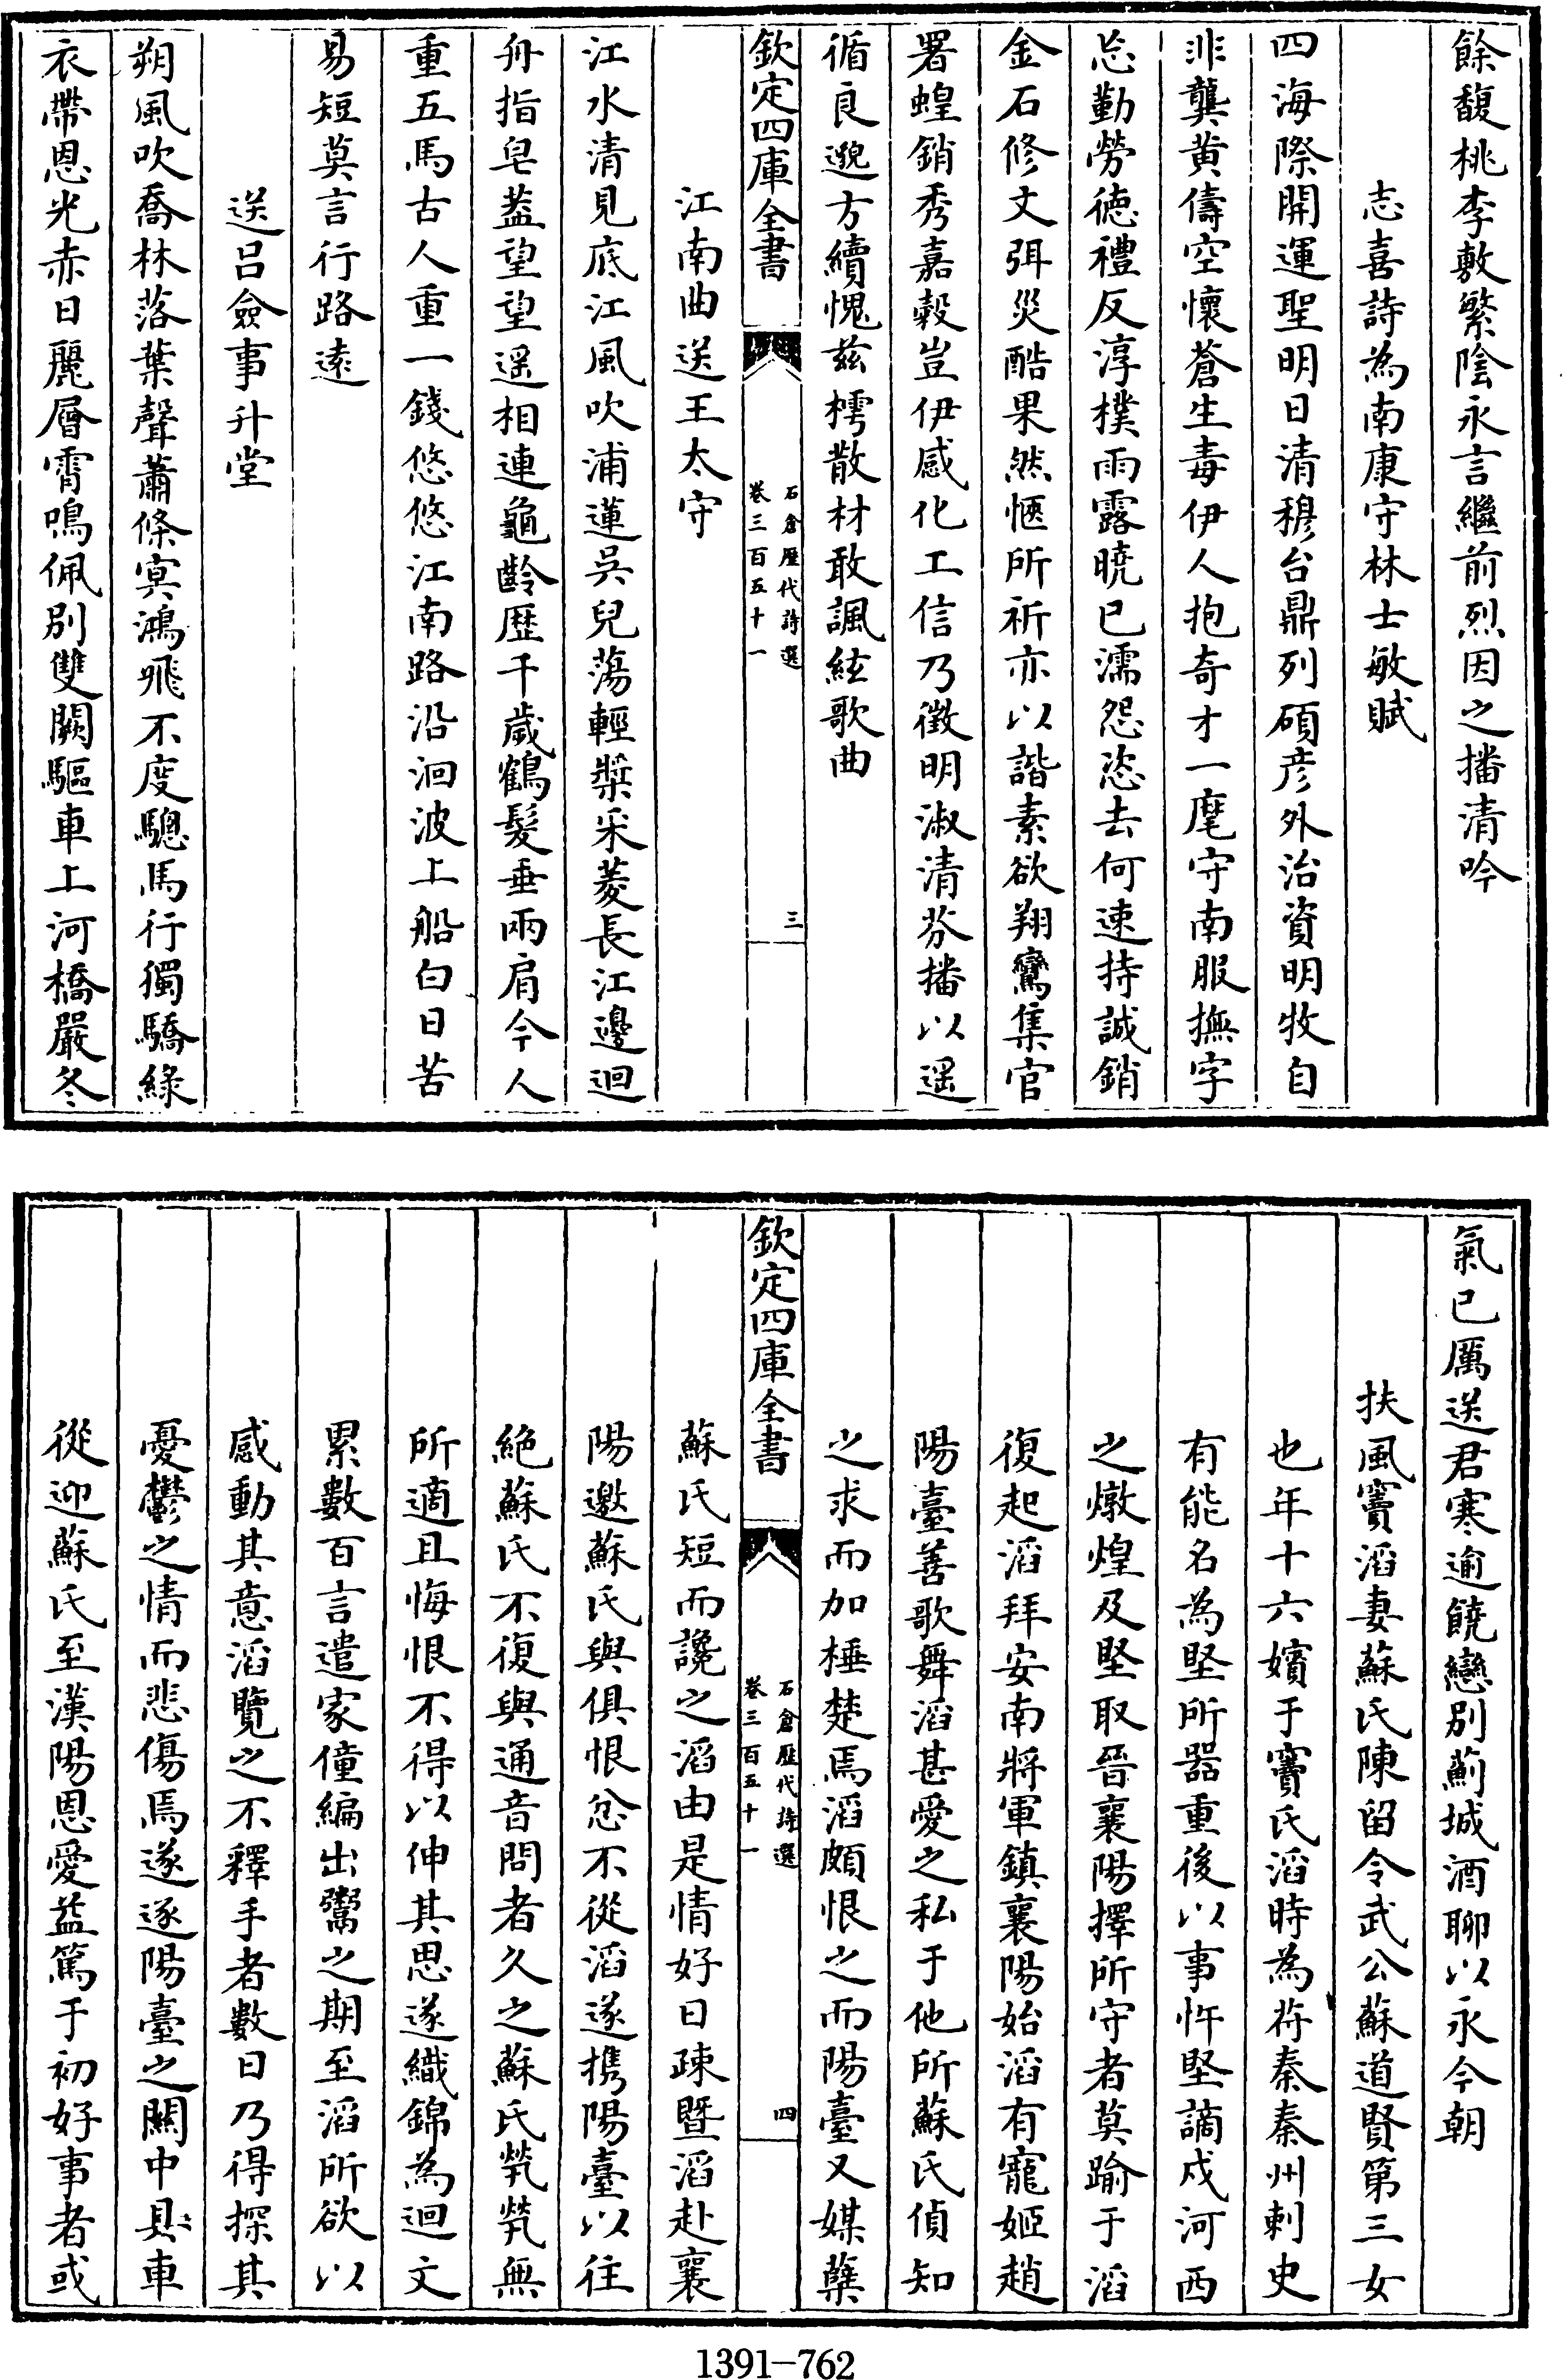 餘馥桃李敷繁陰永言繼前烈因之播清吟
志喜詩為南康守林士敏賦
四海際開運聖明日清穆台鼎列碩彦外治資明牧自
非龔黄儔空懷蒼生毒伊人抱奇才一麾守南服撫字
忘勤勞德禮反淳樸雨露曉已濡怨恣去何速持誠銷
金石修文弭災酷果然愜所祈亦以諧素欲翔鸞集官
署蝗銷秀嘉穀豈伊感化工信乃徵明淑清芬播以遥
循良邈方續愧兹樗散材敢諷絃歌曲
欽定四庫全書
石倉歷代詩選
卷三百五十一
三
江南曲送王太守
江水清見底江風吹浦蓮吳兒蕩輕槳采菱長江邊迴
舟指皂葢望望遥相連龜齡歷千歲鶴髮垂兩肩今人
重五馬古人重一錢悠悠江南路沿洄波上船白日苦
易短莫言行路遠
送呂僉事升堂
朔風吹喬林落葉聲蕭條㝠鴻飛不度驄馬行獨驕緑
衣帶恩光赤日麗層霄鳴佩别雙闕驅車上河橋嚴冬
氣已厲送君寒逾饒戀别薊城酒聊以永今朝
扶風竇滔妻蘇氏陳留令武公蘇道賢第三女
也年十六嬪于竇氏滔時為苻秦秦州刺史
有能名為堅所器重後以事忤堅謫戍河西
之燉煌及堅取晉襄陽擇所守者莫踰于滔
復起滔拜安南將軍鎮襄陽始滔有寵姬趙
陽臺善歌舞滔甚愛之私于他所蘇氏偵知
之求而加棰楚焉滔頗恨之而陽臺又媒蘖
欽定四庫全書
石倉歷代詩選
卷三百五十一
四
蘇氏短而讒之滔由是情好日疎暨滔赴襄
陽邀蘇氏與俱恨忿不從滔遂携陽臺以往
絶蘇氏不復與通音問者久之蘇氏煢煢無
所適且悔恨不得以伸其思遂織錦為迴文
累數百言遣家僮編出鬻之期至滔所欲以
感動其意滔覽之不釋手者數日乃得探其
憂鬱之情而悲傷焉遂遂陽臺之關中具車
從迎蘇氏至漢陽恩愛益篤于初好事者或
1391-762